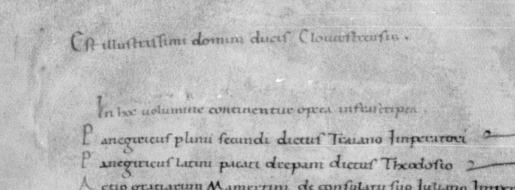 Est illustrissimi domini ducis Cloucestrensis.
In hoc uolumine continentur opera infrascripta.
Panegiricus plinii secundi dictus Traiano Imperatori
Panegiricus latini pacati drepani dictus Theodosio
Actio gratiarum Mamertini de consulatu suo Iuliano Impe